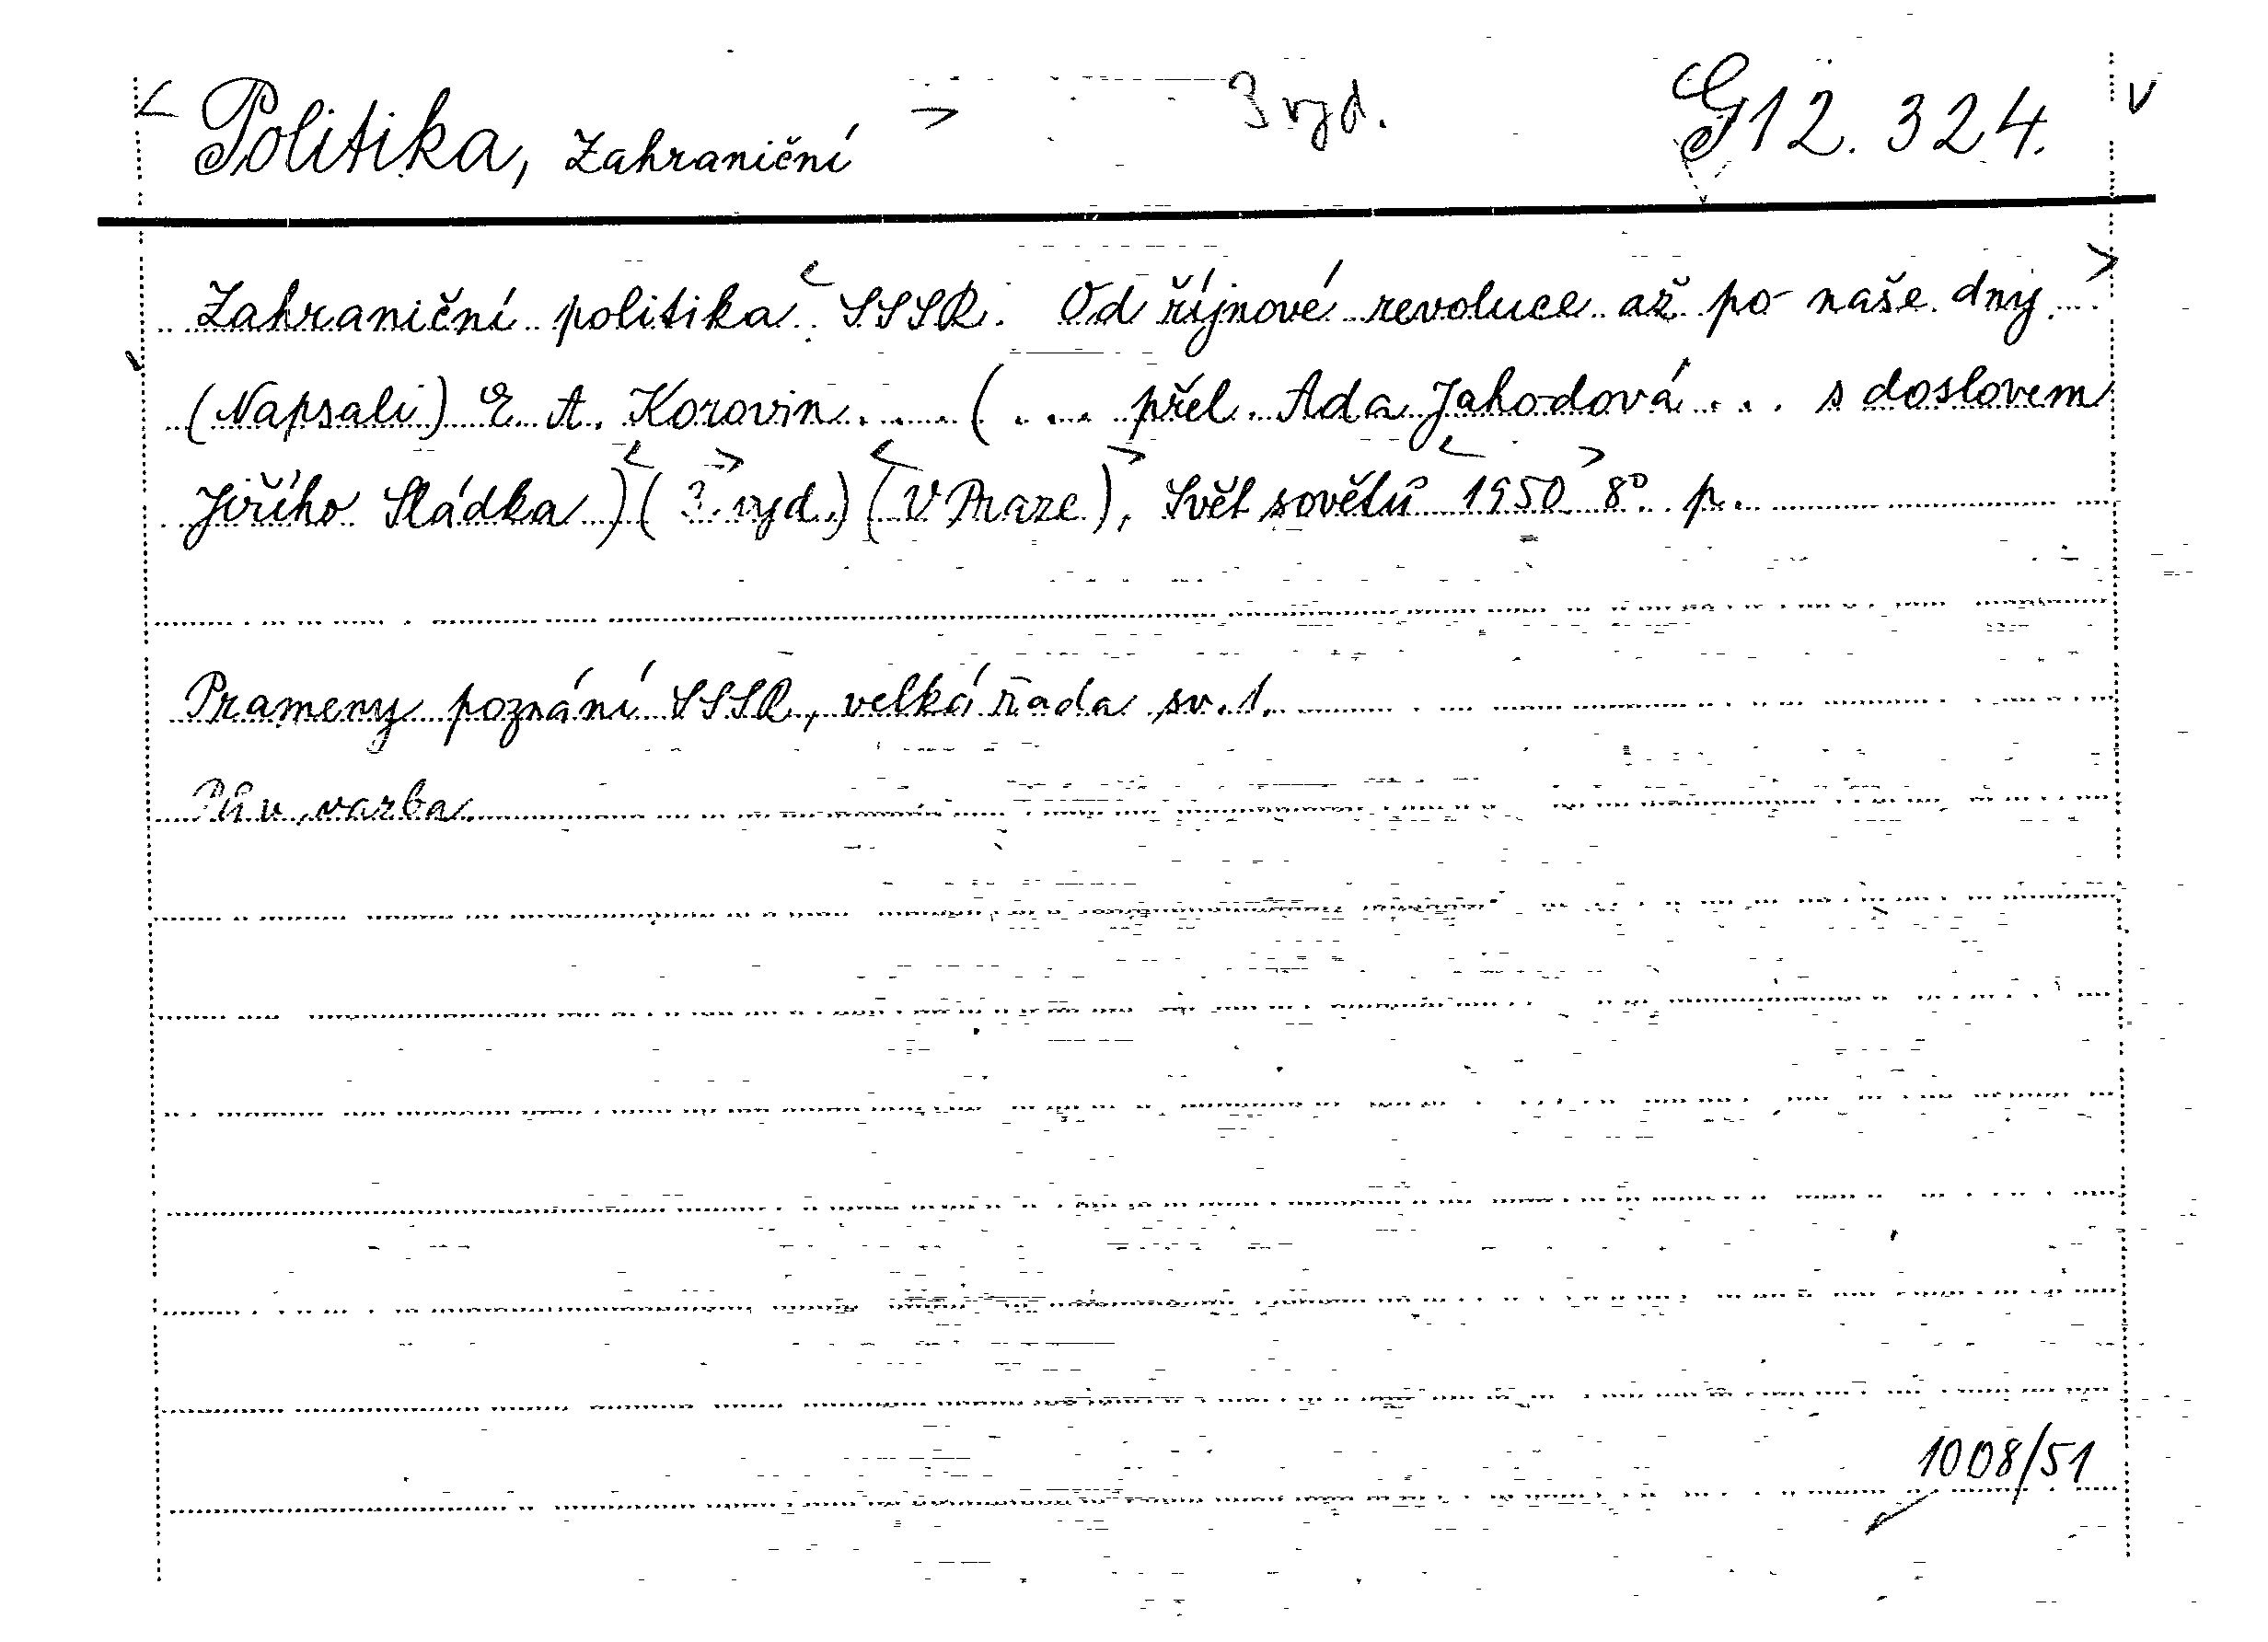 Politika, Zahraniční 3 vyd. G 12.324.
Zahraniční politika SSSR. Od říjnové revoluce až po naše dny.
(Napsali) E. A. Korovin .... (.... přel. Ada Jahodová ... s doslovem
Jiřího Sládka) (3. vyd.) (V Praze), Svět sovětů 1950 8° p.
Prameny poznání SSSR, velká řada sv. 1.
Pův. vazba.
1008/51